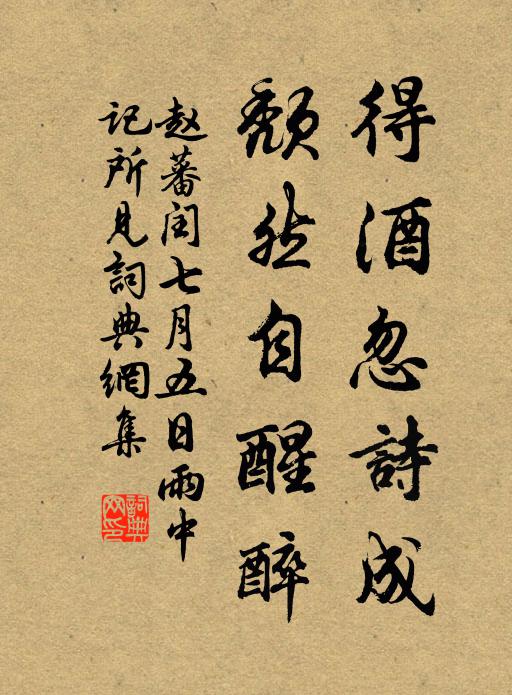 得酒忽詩成
頹然自醒醉
赵蕃闰七月五日雨中
记所见詞典網集
詞典
网印